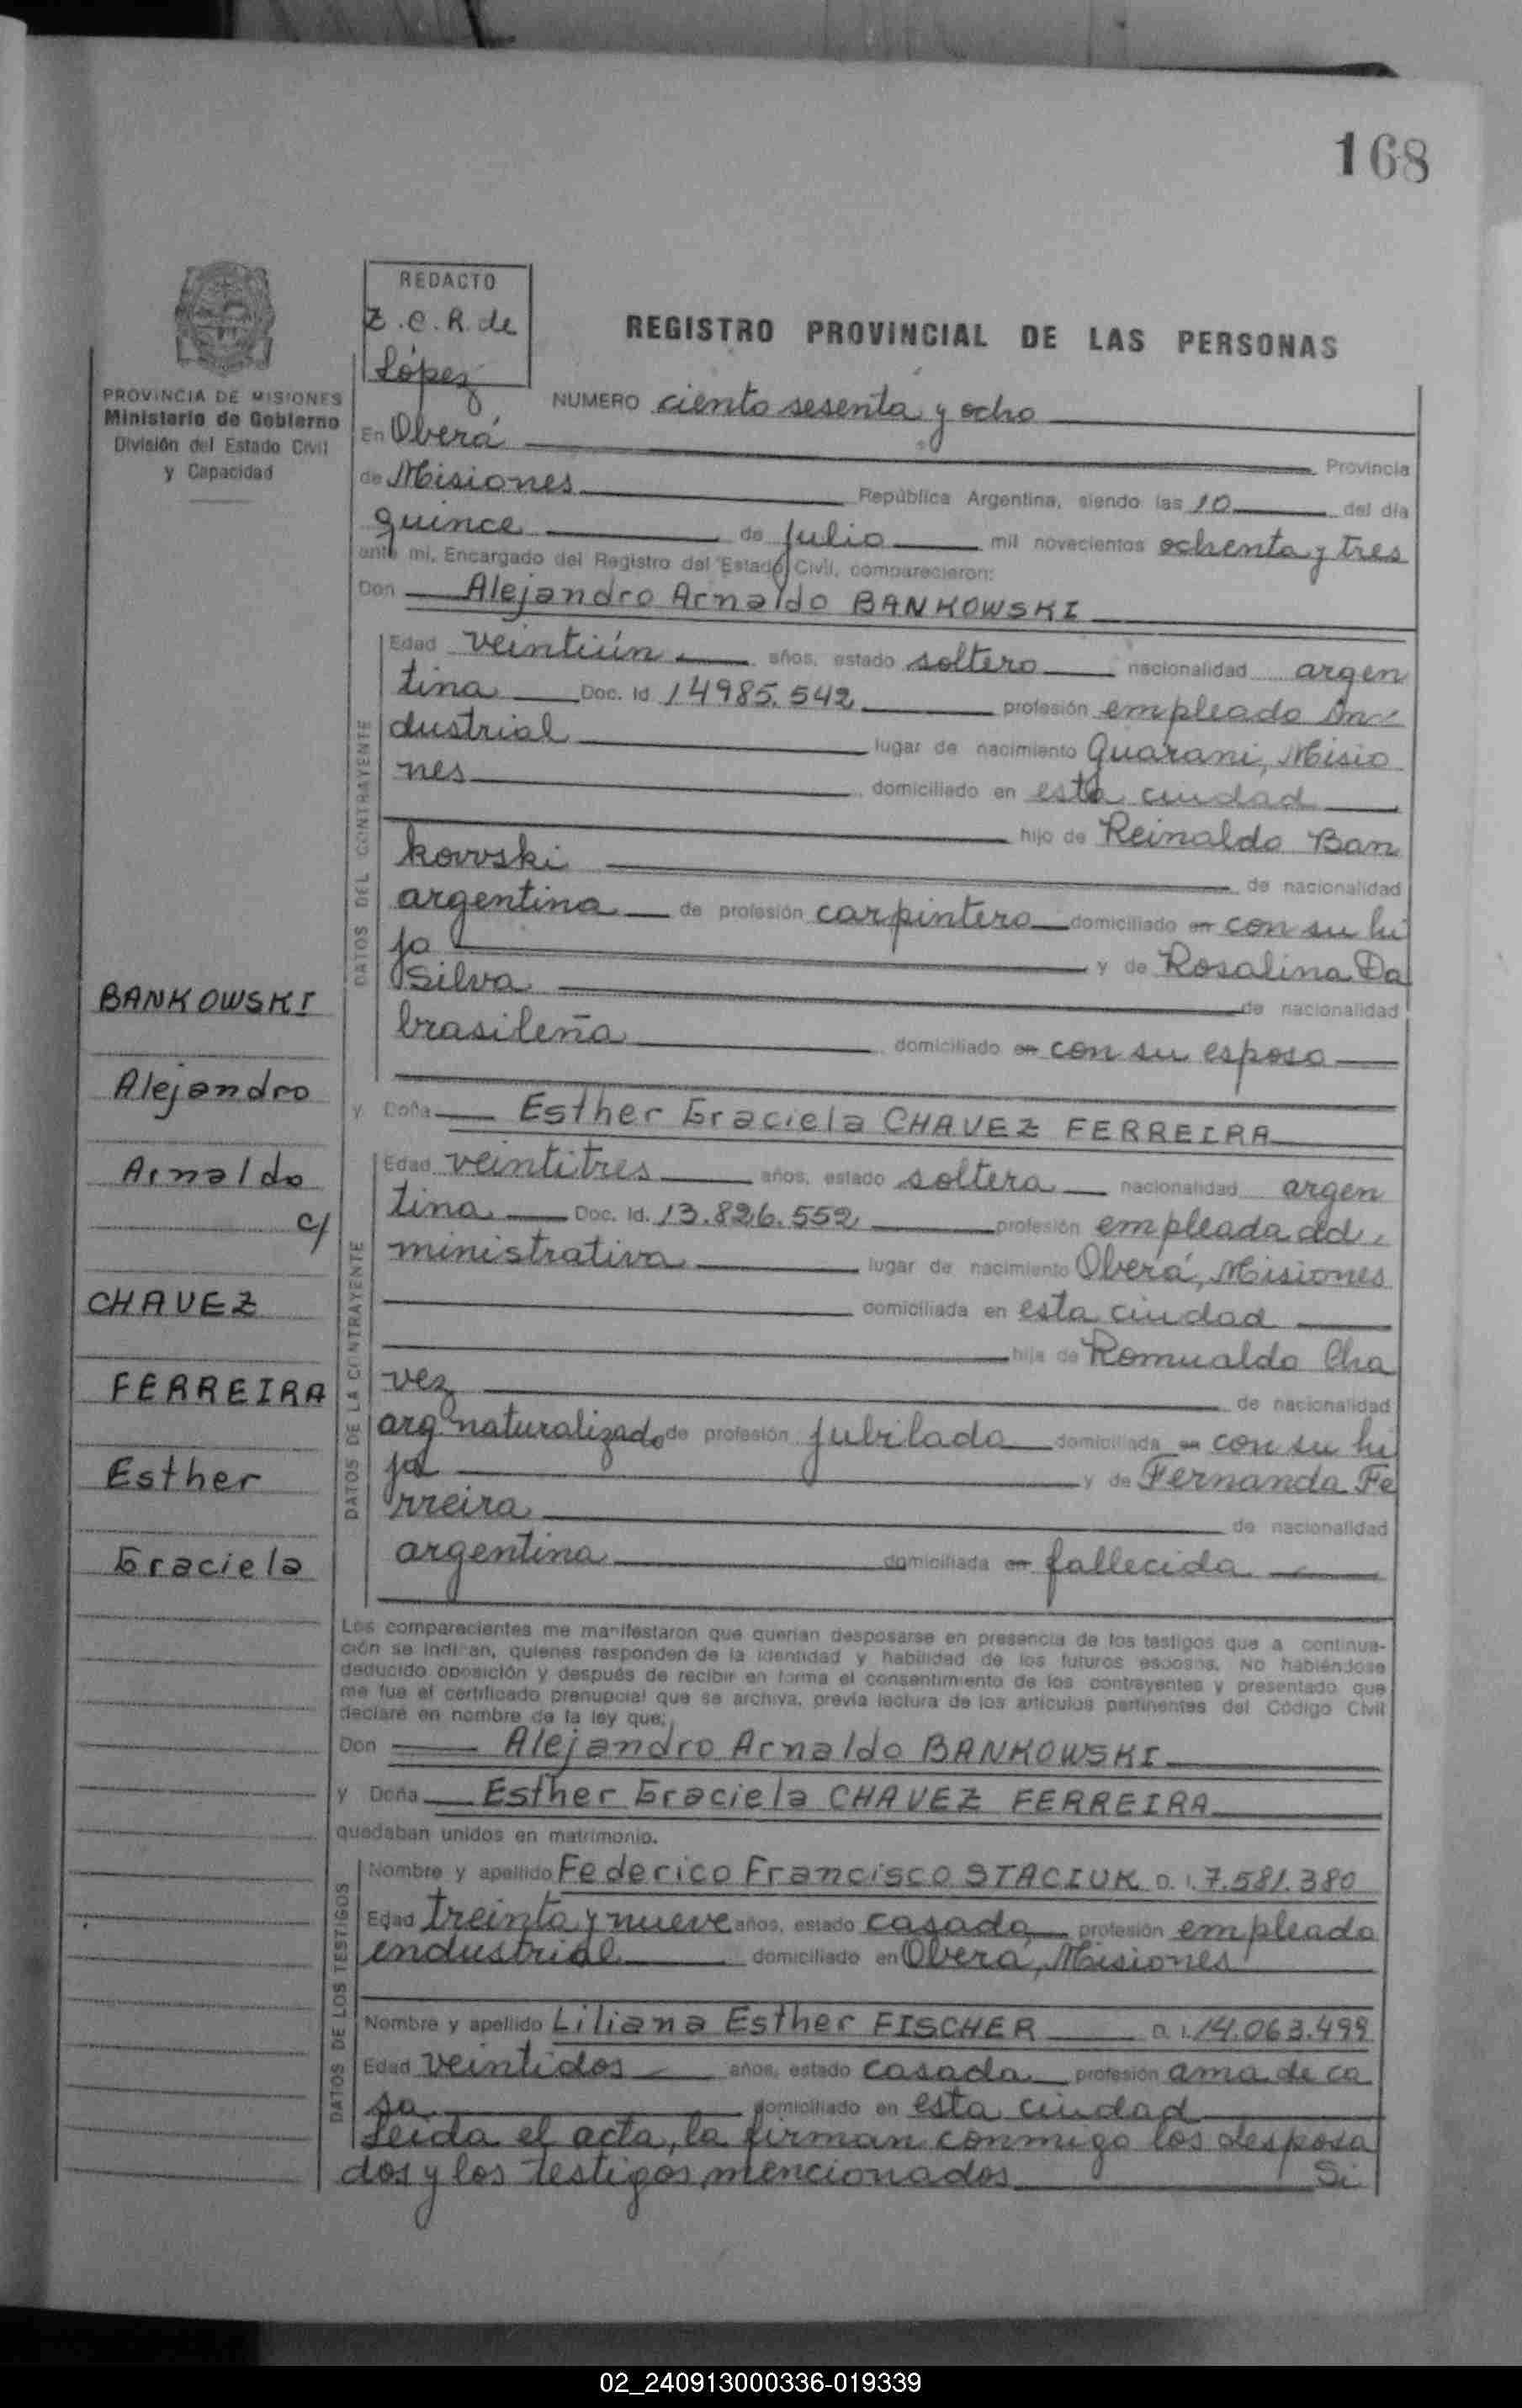 168
REDACTO
Z.C.R. de
López
REGISTRO PROVINCIAL DE LAS PERSONAS
PROVINCIA DE MISIONES
Ministerio de Gobierno
División del Estado Civil
y Capacidad
NUMERO ciento sesenta y ocho
En Oberá Provincia
de Misiones República Argentina, siendo las 10 del día
quince de julio mil novecientos ochenta y tres
ante mí, Encargado del Registro del Estado Civil, comparecieron:
Don Alejandro Arnaldo BANKOWSKI
DATOS DEL CONTRAYENTE
Edad veintiún años, estado soltero nacionalidad argen
tina Doc. Id 14985.542 profesión empleado in
dustrial lugar de nacimiento Guarani, Misio
nes domiciliado en esta ciudad
hijo de Reinaldo Ban
kowski de nacionalidad
argentina de profesión carpintero domiciliado en con su hi
jo y de Rosalina Da
Silva de nacionalidad
brasileña domiciliado en con su esposo
y Doña Esther Graciela CHAVEZ FERREIRA
DATOS DE LA CONTRAYENTE
Edad veintitres años, estado soltera nacionalidad argen
tina Doc. Id. 13.826.552 profesión empleada ad
ministrativa lugar de nacimiento Oberá, Misiones
domiciliada en esta ciudad
hija de Romualdo Cha
vez de nacionalidad
arg. naturalizado de profesión jubilado domiciliada en con su hi
ja y de Fernanda Fe
rreira de nacionalidad
argentina domiciliada en fallecida
BANKOWSKI
Alejandro
Arnaldo
c/
CHAVEZ
FERREIRA
Esther
Graciela
Los comparecientes me manifestaron que querían desposarse en presencia de los testigos que a continua-
ción se indican, quienes responden de la identidad y habilidad de los futuros esposos. No habiéndose
deducido oposición y después de recibir en forma el consentimiento de los contrayentes y presentado que
me fue el certificado prenupcial que se archiva, previa lectura de los artículos pertinentes del Código Civil
declaré en nombre de la ley que:
Don Alejandro Arnaldo BANKOWSKI
y Doña Esther Graciela CHAVEZ FERREIRA
quedaban unidos en matrimonio.
DATOS DE LOS TESTIGOS
Nombre y apellido Federico Francisco STACIUK D. I. 7.581.380
Edad treinta y nueve años, estado casado profesión empleado
industrial domiciliado en Oberá, Misiones
Nombre y apellido Liliana Esther FISCHER D. I. 14.063.499
Edad veintidos años, estado casada profesión ama de ca
sa domiciliado en esta ciudad
Leida el acta, la firman conmigo los desposa
dos y los testigos mencionados Si
02_240913000336-019339